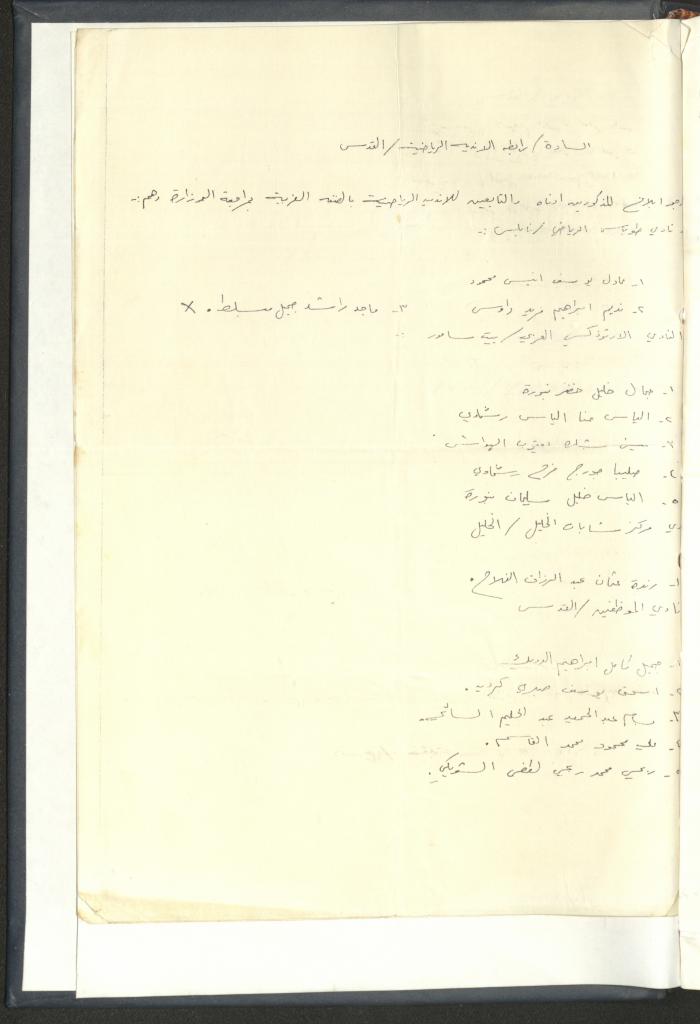 السادة / رابطة الاندية الرياضية / القدس
ابلاغ المذكورين ادناه والتابعين للاندية الرياضية بالضفة الغربية بمراجعة الوزارة وهم :-
نادي طوباس الرياضي / نابلس :-
١- عادل يوسف انيس محمود
٢- نديم ابراهيم ٣- ماجد راشد جميل مسلط . X
النادي الارثوذكسي العربي / بيت ساحور :-
١- جمال خليل خضر بنورة
٢- الياس حنا الياس رشماوي
٣-
٤- صليبا جورج فرح رشماوي
٥- الياس خليل سليمان بنورة
مركز شابات الخليل / الخليل
١- رندة عثمان عبد الرزاق الفلاح .
نادي الموظفين / القدس
١- جميل كامل ابراهيم
٢- اسحق يوسف صبري
٣- عبد الحميد عبد الحليم السائح .
٤- محمود محمد القاسم .
٥- محمد لطفي الشويكي .